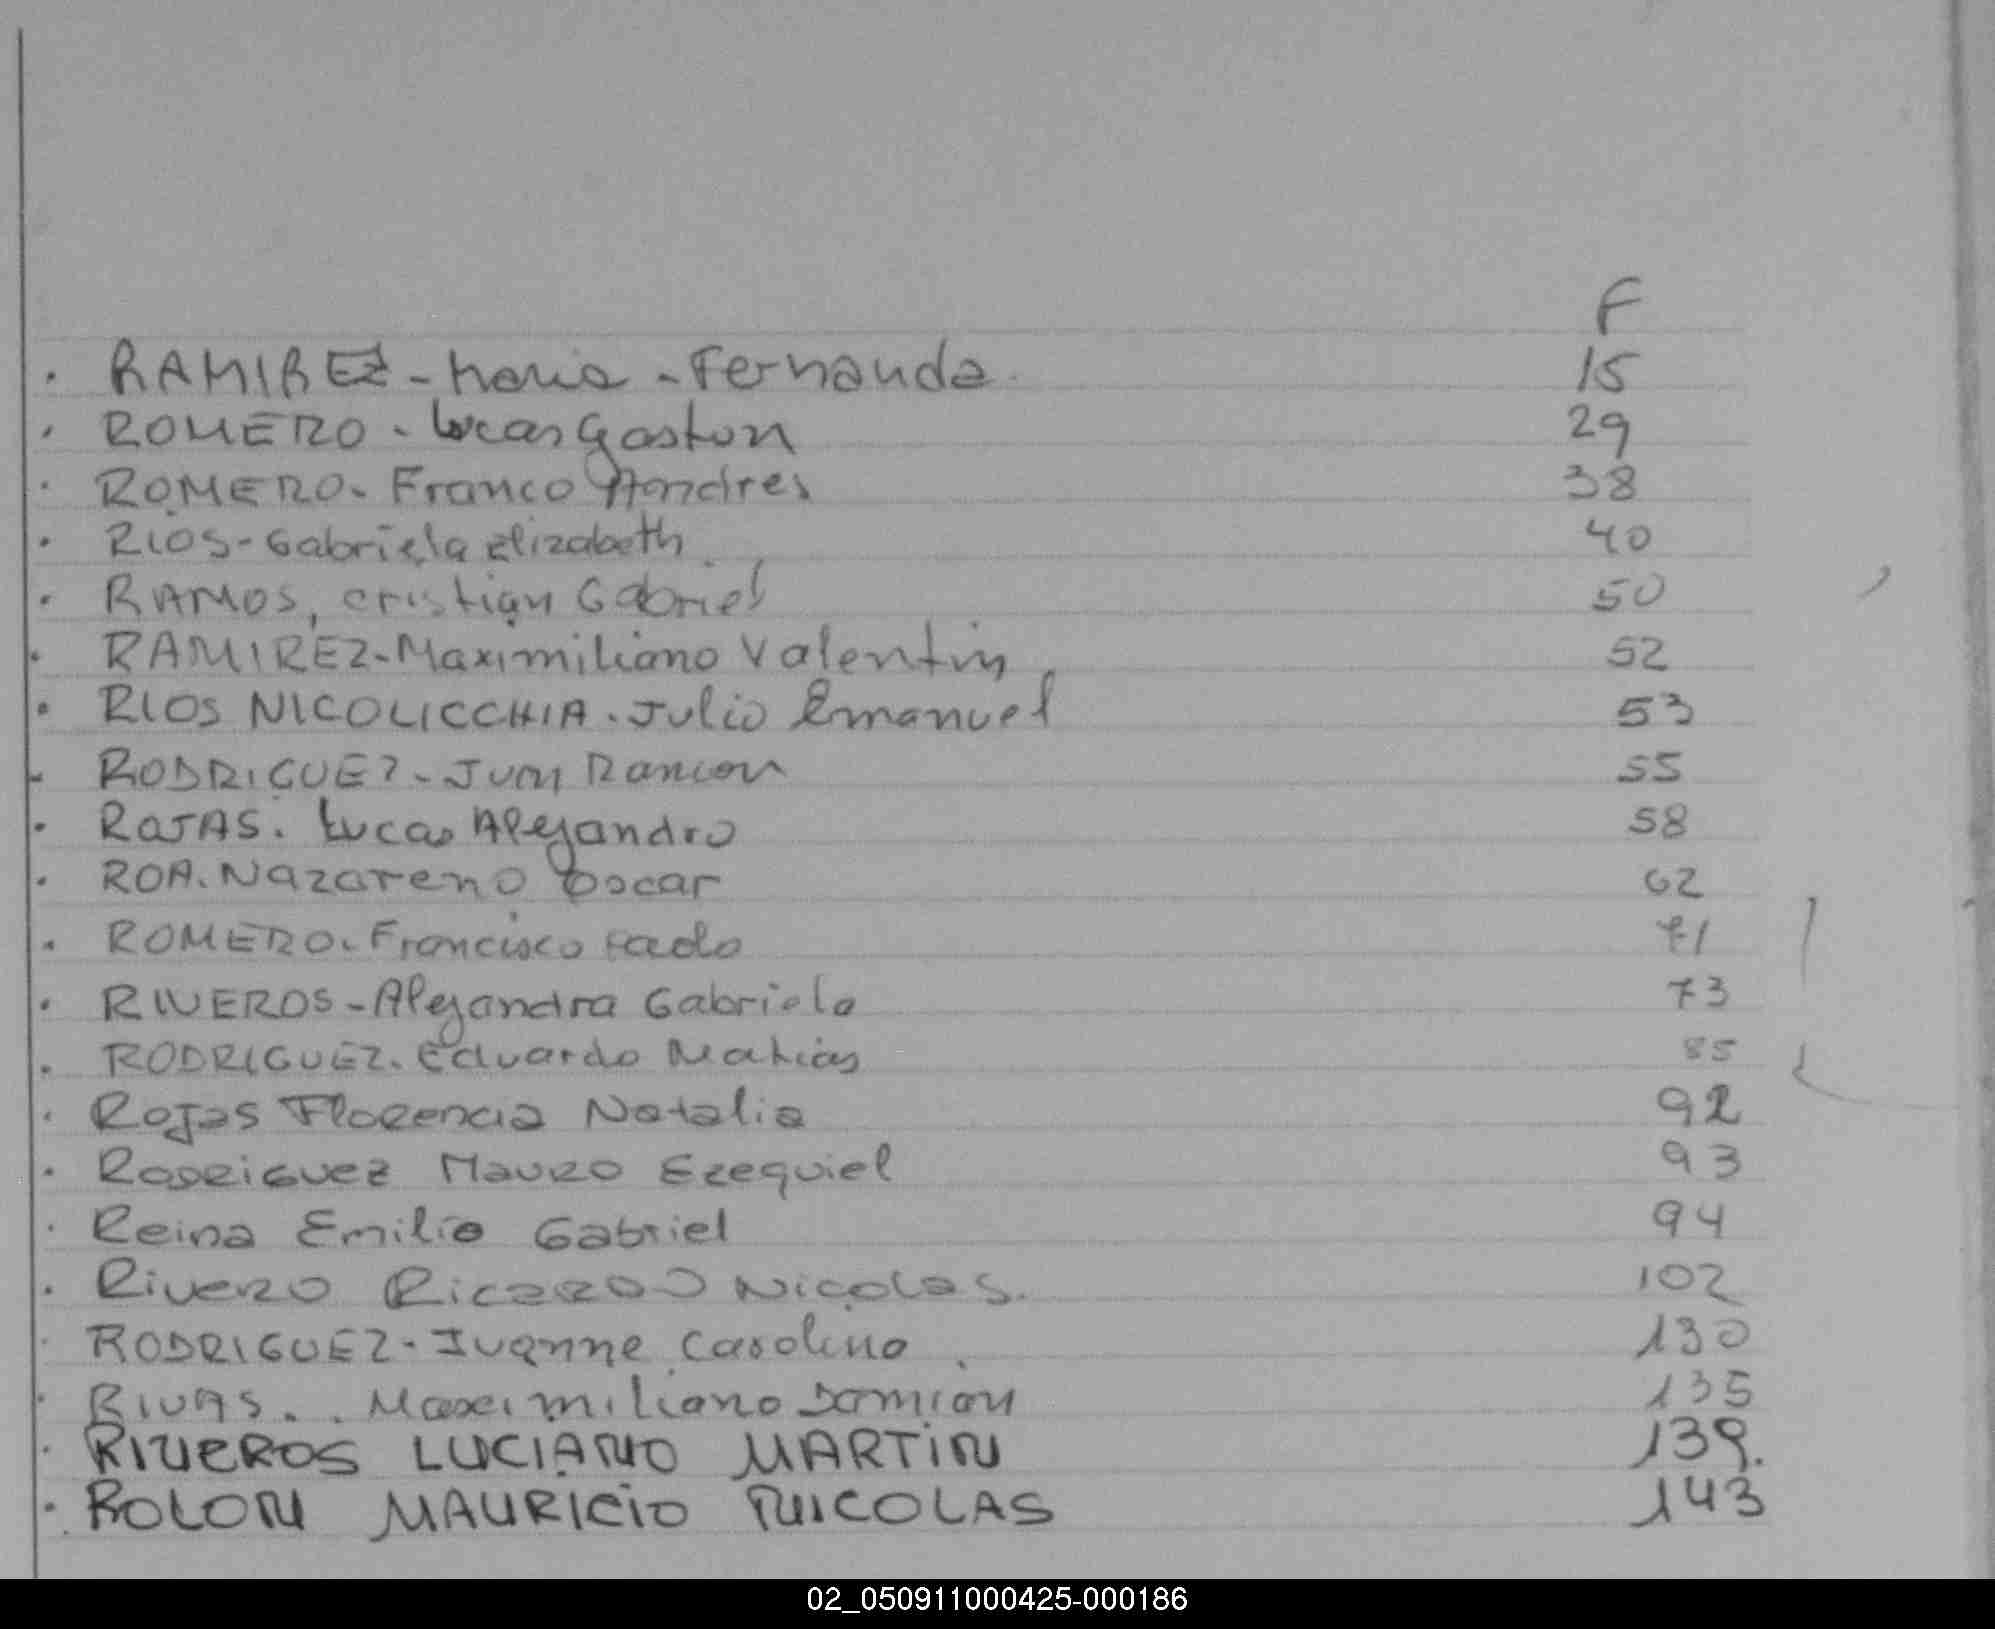 F
. RAMIREZ - Maria - Fernanda. 15
. ROMERO - Lucas Gaston 29
. ROMERO. Franco Andres 38
. RIOS - Gabriela Elizabeth 40
. RAMOS, Cristian Gabriel 50
. RAMIREZ - Maximiliano Valentin 52
. RIOS NICOLICCHIA. Julio Emanuel 53
- RODRIGUEZ - Juan Ramon 55
. ROJAS. Lucas Alejandro 58
. ROA. Nazareno Oscar 62
. ROMERO. Francisco 71
. RIVEROS - Alejandra Gabriela 73
. RODRIGUEZ. Eduardo Matias 85
. Rojas Florencia Natalia 92
. Rodriguez Mauro Ezequiel 93
. Reina Emilio Gabriel 94
. Rivero Ricardo Nicolas. 102
. RODRIGUEZ - Ivanne Carolina. 130
. RIVAS. . Maximiliano Damian 135
. RIVEROS LUCIANO MARTIN 139.
. ROLON MAURICIO NICOLAS 143
02_050911000425-000186